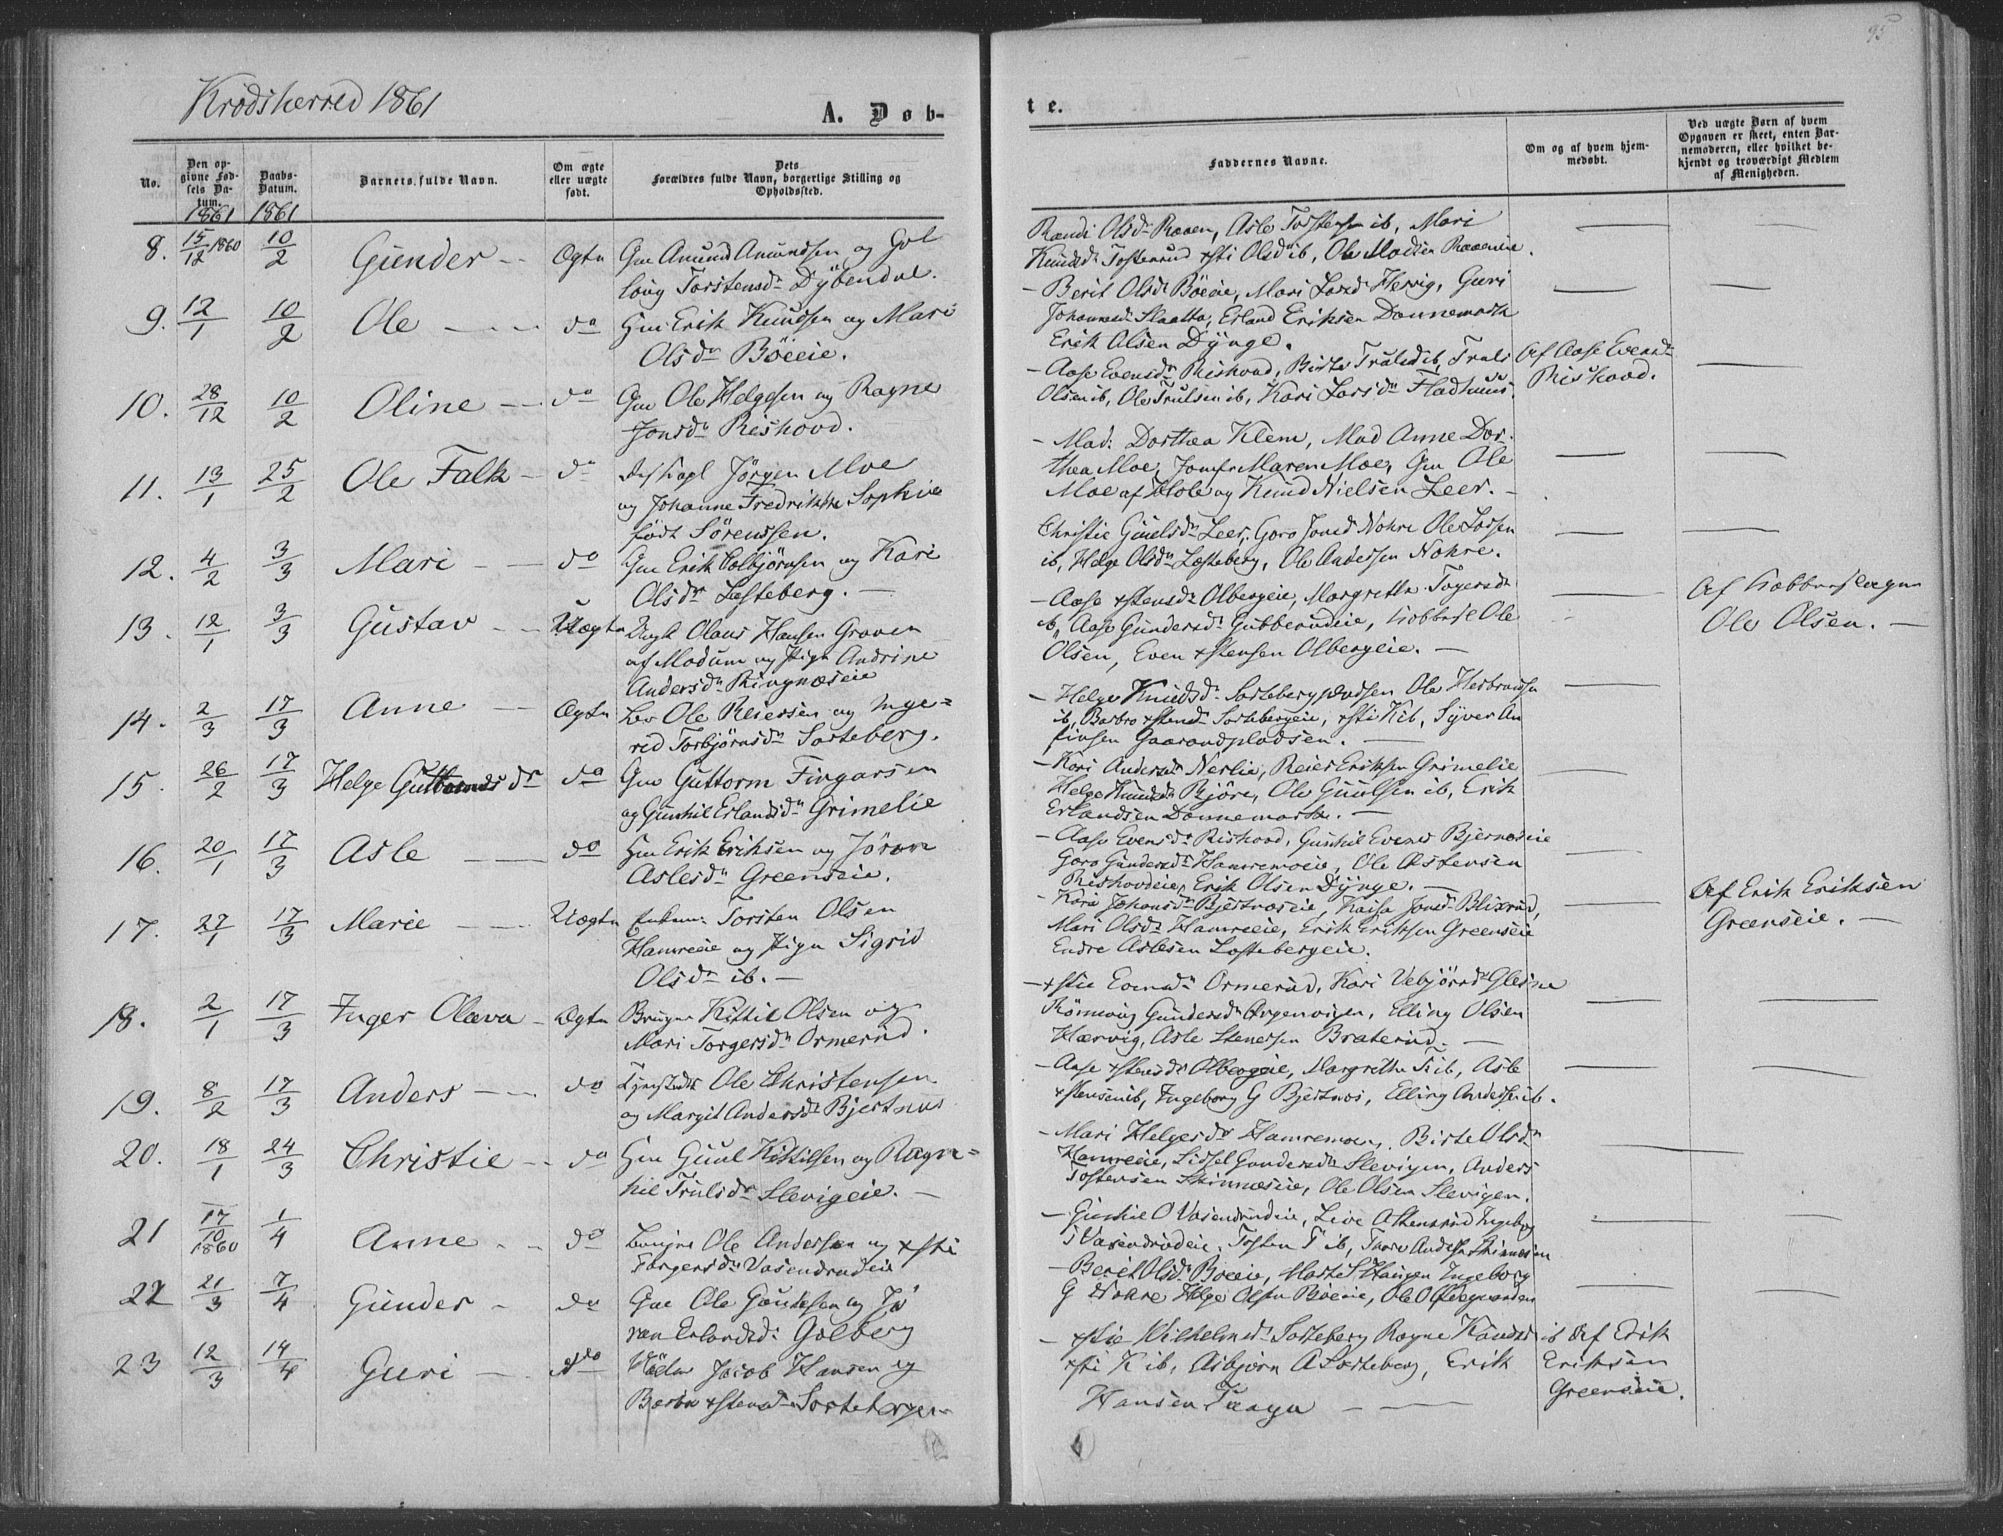 95
Krødsherred 1861
A. Døb-
te.
No.
Den op-
givne Fød-
sels Da-
tum.
1861
Daabs-
Datum.
1861
Barnets fulde Navn.
Om ægte
eller uægte
født.
Dets
Forældres fulde Navn, borgerlige Stilling og
Opholdssted.
Faddernes Navne.
Om og af hvem hjem-
medøbt.
Ved uægte Børn af hvem
Opgaven er skeet, enten Bar-
nemoderen, eller hvilket be-
kjendt og troværdigt Medlem
af Menigheden.
8. 15/12 1860 10/2 Gunder Ægte Gm Amund Amundsen og Gol
laug Torstensdr Dybendal.
Randi Olsdr Raaen, Asle Torstensen ib, Mari
Knudsdr Tostensrud Xsti Olsdr ib, Ole Madsen Raaeneie.
9. 12/1 10/2 Ole do Hm Erik Knudsen og Mari
Olsdr Böeeie.
- Berit Olsdr Böeie, Mari Larsdr Hervig, Guri
Johannesdr Slaatto, Erland Eriksen Donnemark
Erik Olsen Dynge.
10. 28/12 10/2 Oline do Gm Ole Helgesen og Ragne
Jonsdr Rishovd.
- Aase Evensdr Rishovd, Birte Trulsdr ib, Truls
Olsen ib, Ole Trulsen ib, Kari Larsdr Fladhuus.
Af Aase Evensdr
Rishovd.
11. 13/1 25/2 Ole Falk do Jörgen Moe
og Johanne Fredrikke Sophie
født Sörenssen.
- Mad: Dorthea Klem, Mad Anne Dor-
thea Moe, Jomfr Maren Moe, Gm Ole
Moe af Hole og Knud Nielsen Leer.
12. 4/2 3/3 Mari do Gm Erik Colbjörnsen og Kari
Olsdr Lesteberg.
Christie Guulsdr Leer, Goro Jonsdr Nohre Ole Larsen
ib, Helge Olsdr Lesteberg, Ole Andersen Nohre.
13. 12/1 3/3 Gustav Uægte Ungk Olaus Hansen Graven
af Modum og Pige Andrine
Andersdr Ringnæseie
- Aase Xstensdr Olbergeie, Margrethe Torgersdr
ib, Aase Gundersdr Gubberudeie, Kobbersl Ole
Olsen, Even Xstensen Olbergeie.
Af Kobberslager
Ole Olsen.
14. 2/3 17/3 Anne Ægte Lev Ole Reiersen og Inge=
red Torbjörnsdr Sorteberg.
- Helge Knudsdr Sortebergpladsen Ole Herbrandsen
ib, Barbro Xstensdr Sortebergeie, Xsti K ib, Syver An
finsen Gaarandpladsen.
15. 26/2 17/3 Helge Guttormsdr do Gm Guttorm Fingarsen
og Gunhil Erlandsdr Grimelie
- Kari Andersdr Nerlie, Reier Eriksen Grimelie
Helge Knudsdr Björe, Ole Guulsen ib, Erik
Erlandsen Donnemark.
16. 20/1 17/3 Asle do Hm Erik Eriksen og Jöran
Aslesdr Greenseie.
- Aase Evensdr Rishovd, Gunhil Evensdr Bjernæseie
Goro Gundersdr Hamremoeie, Ole Østensen
Rishovdeie, Erik Olsen Dynge.
17. 27/1 17/3 Marie Uægte Torsten Olsen
Hamreeie og Pige Sigrid
Olsdr ib.
- Kari Johansdr Bjertnæseie, Kaisa Jonsdr Blixrud,
Mari Olsdr Hamreeie, Erik Eriksen Greenseie
Endre Aslesen Lestebergeie.
Af Erik Eriksen
Greenseie.
18. 2/1 17/3 Inger Olava Ægte Bruger Kittil Olsen og
Mari Torgersdr Ormerud.
- Xstie Evensdr Ormerud, Kari Vebjörnsdr Glesne
Römoug Gundersdr Ørgenvigen, Elling Olsen
Hærvig, Asle Stenersen Braterud.
19. 8/2 17/3 Anders do Ole Christensen
og Margit Andersdr Bjertnes
- Aase Xstensdr Olbergeie, Margrethe T ib, Asle
Xstensen ib, Ingeborg G Bjertnæs, Elling Andersen ib.
20. 18/1 24/3 Christie do Hm Guul Kittilsen og Ragn=
hil Trulsdr Slevigeie.
- Mari Helgesdr Hamremoen, Birte Olsdr
Hamreeie, Sidsel Gundersdr Slevigen, Anders
Tostensen Skinneseie, Ole Olsen Slevigen.
21 17/10 1860 1/4 Anne do Ole Andersen og Xsti
Torgersdr Vasendrudeie
- Gunhil O Vasendrudeie, Live A Stensrud Ingeborg
T Vasendrudeie, Tosten T ib, Tore Anders Skinnesen
22 21/3 7/4 Gunder do Gm Ole Gundersen og Jö
ran Erlandsdr Golberg
- Berit Olsdr Böeeie, Marte S Haugen Ingeborg
G Nohre Helge Olsen Böeeie, Ole O
23 12/3 14/4 Guri do Jacob Hansen og
Barbro Xstensdr Sortebergeie
- Xstie Wilhelmsdr Sorteberg Ragne Knudsdr ib
Xsti K ib, Asbjörn A Sorteberg, Erik
Hansen
Af Erik
Eriksen
Greenseie.